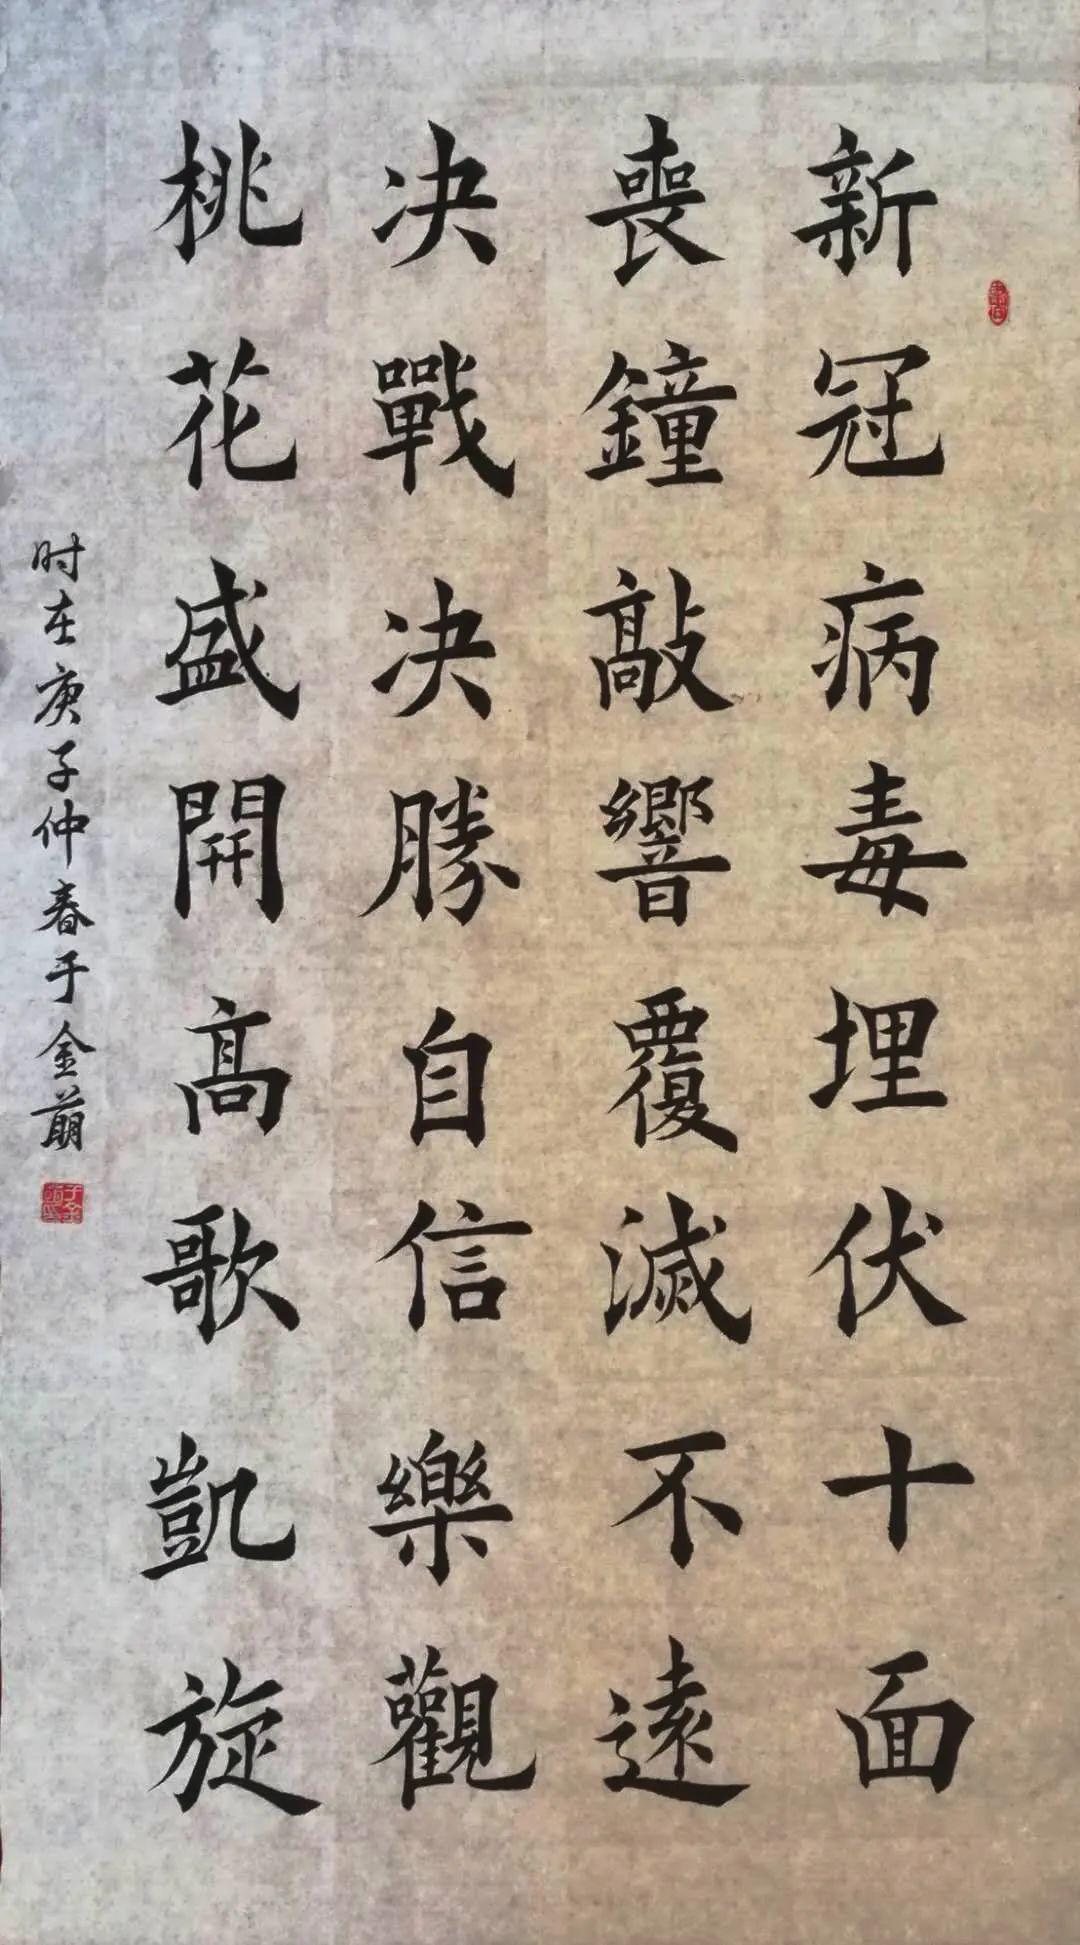 新冠病毒埋伏十面
喪鐘敲響覆滅不遠
决戰决勝自信樂觀
桃花盛開高歌凱旋
时在庚子仲春于金萠